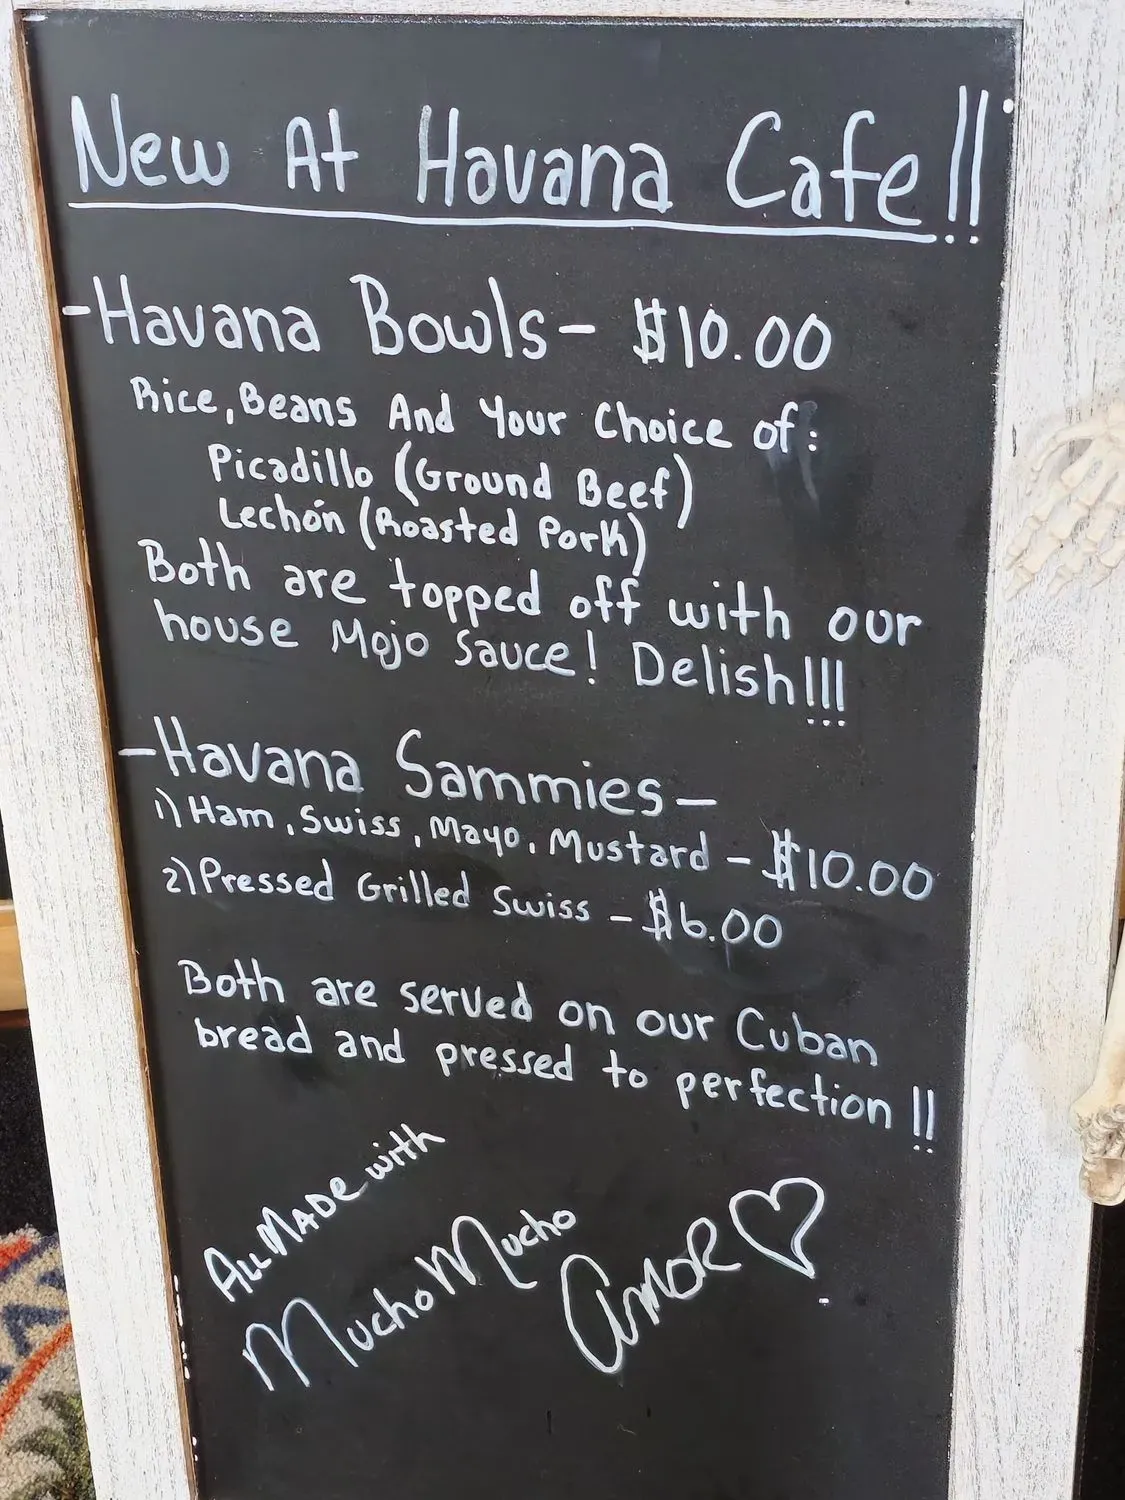 New At Havana Cafe!!
-Havana Bowls- $10.00
Rice, Beans And Your Choice of:
Picadillo (Ground Beef)
Lechón (Roasted Pork)
Both are topped off with our
house Mojo Sauce! Delish!!!
-Havana Sammies-
1) Ham, Swiss, Mayo, Mustard - $10.00
2) Pressed Grilled Swiss - $6.00
Both are served on our Cuban
bread and pressed to perfection!!
All Made with
Mucho Mucho
Amor